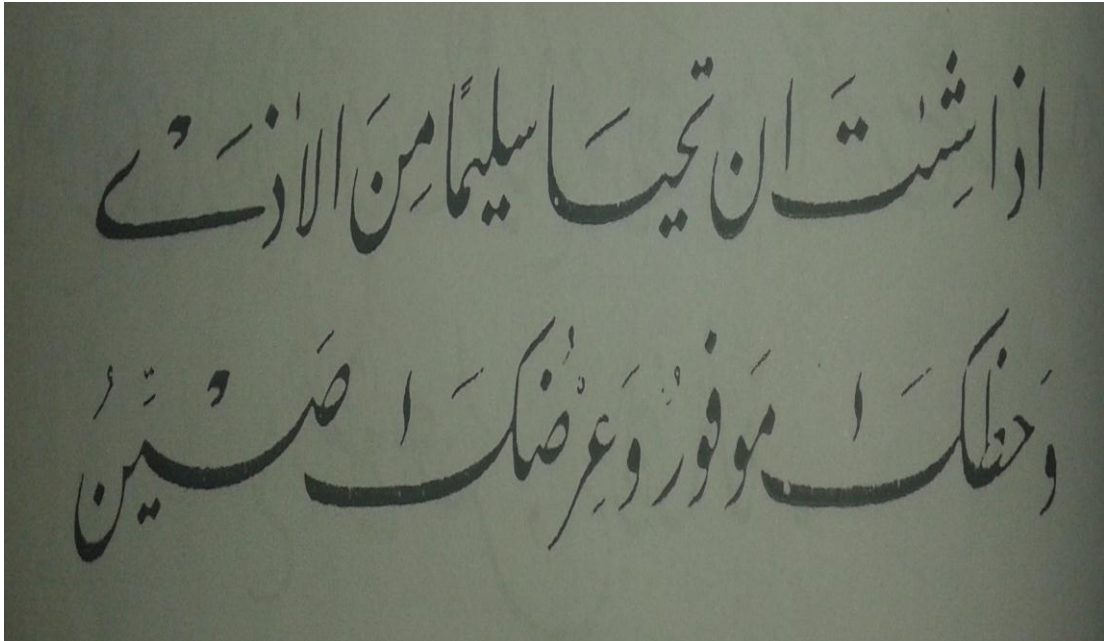 اذا شِئتَ ان تحيَا سليمًا مِنَ الاذَےْ
وَحظكَ مَوفورٌ وَعِرْضُكَ صَيِّنُ